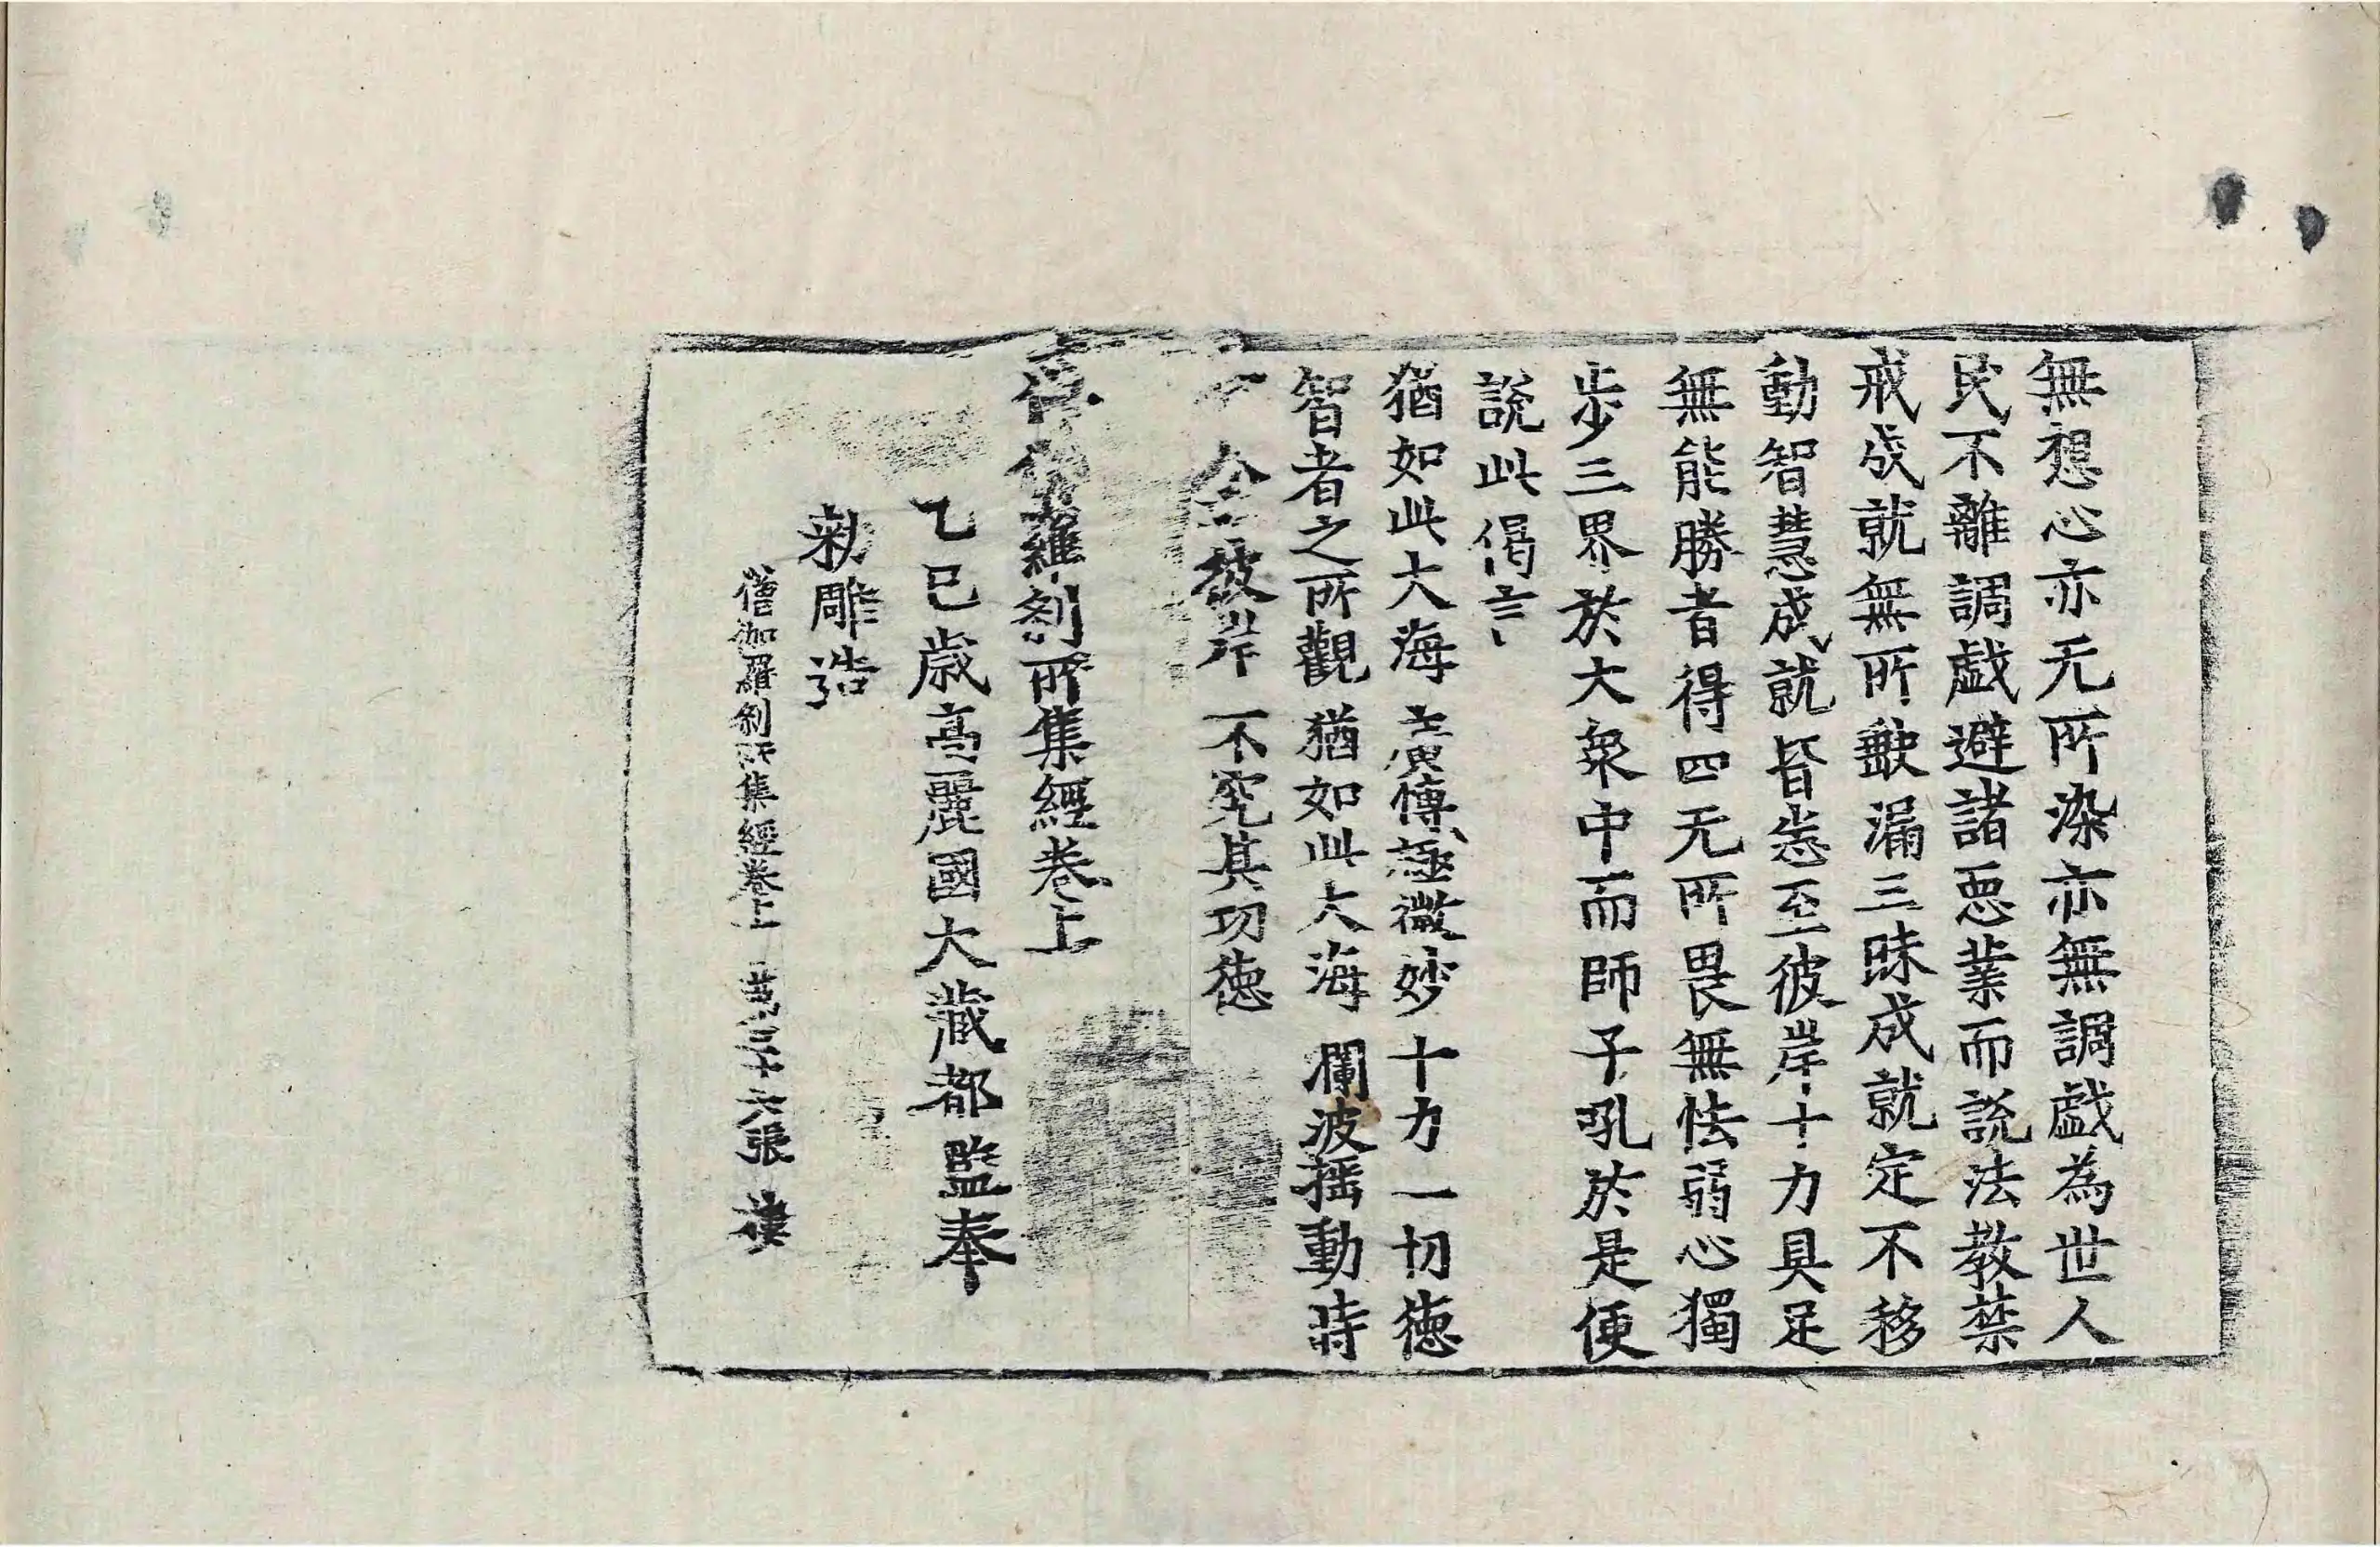 無想心亦无所染亦無調戲為世人
民不離調戲避諸惡業而說法教禁
戒成就無所歠漏三昧成就定不移
動智慧成就皆悉至彼岸十力具足
無能勝者得四无所畏無怯弱心獨
步三界於大衆中而師子吼於是便
說此偈言
猶如此大海 廣博極微妙 十力一切德
智者之所觀 猶如此大海 瀾波揺動時
彼岸 不究其功德
羅剎所集經卷上
乙巳歲高麗國大藏都監奉
勑雕造
僧伽羅剎所集經卷上 第三十六張 樓